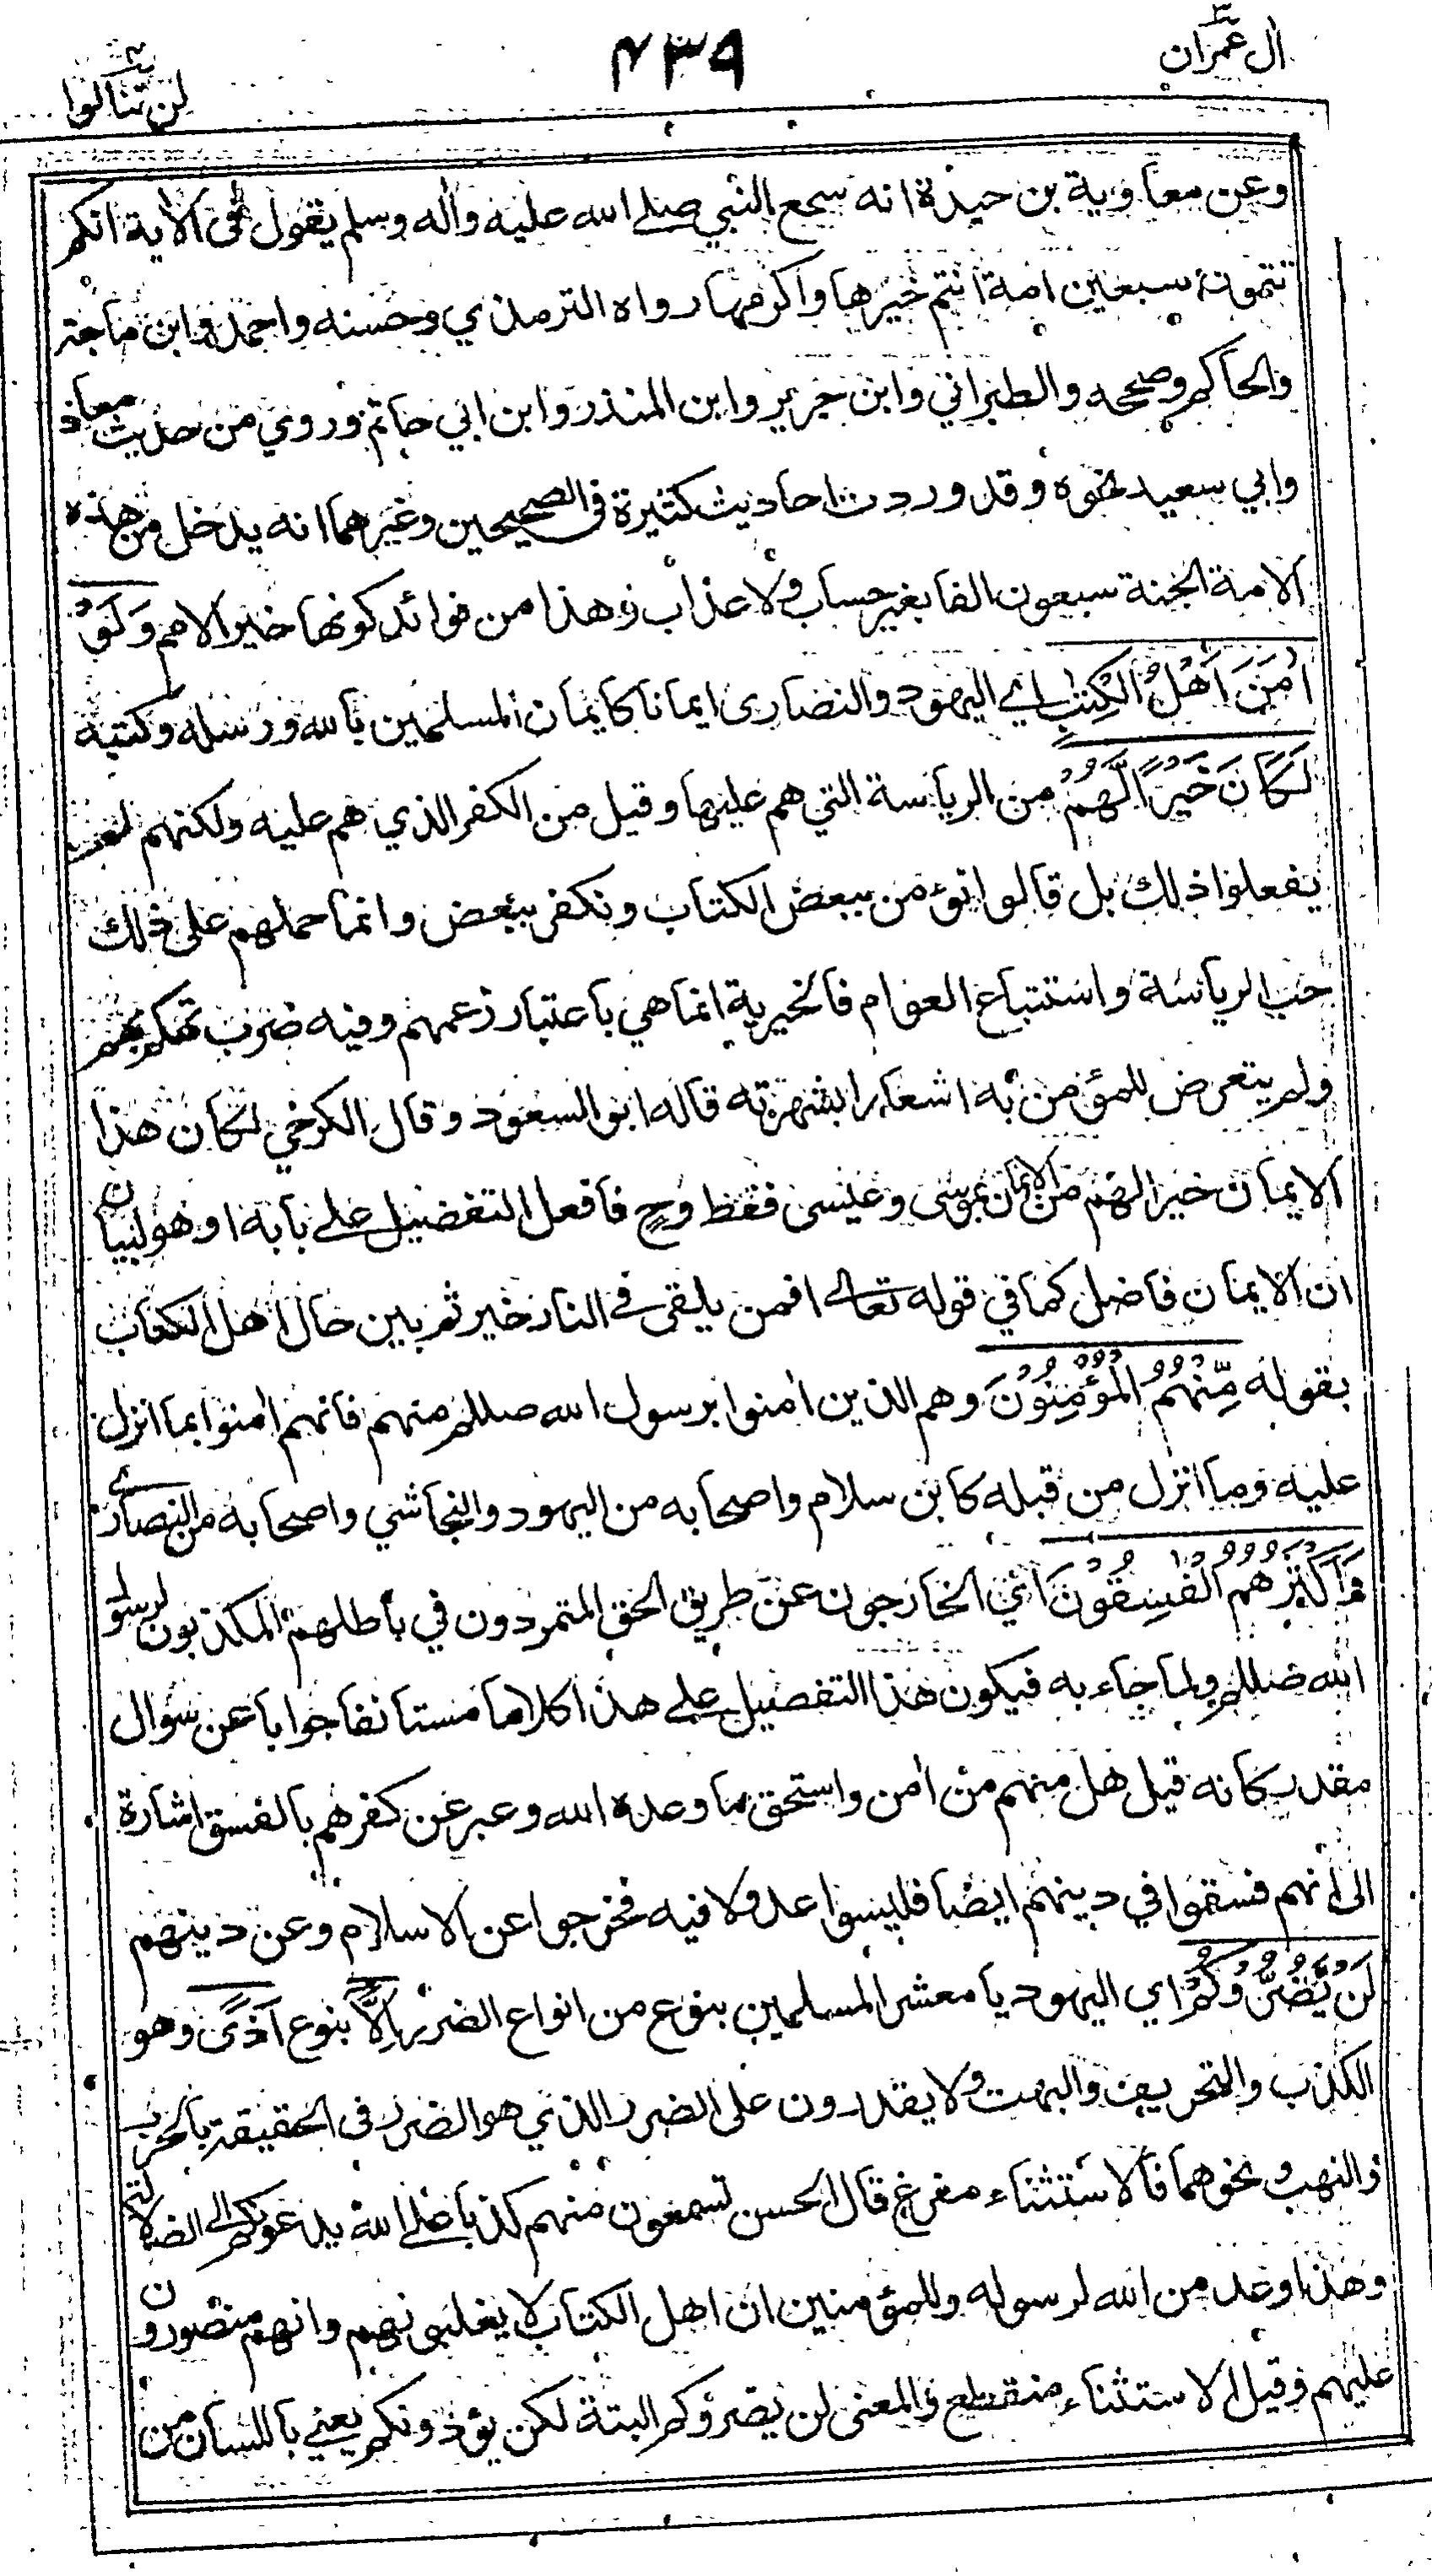 اٰل عمران ٣
٤٣٩
لن تنالوا ٤
وعن معاوية بن حيدة انه سمع النبي صلے الله عليه واٰله وسلم يقول في الاٰية انكم
تتمون سبعين امة انتم خيرها واكرمها رواه الترمذي وحسنه واحمد وابن ماجة
والحاكم وصححه والطبراني وابن جرير وابن المنذر وابن ابي حاتم وروي من حديث معاذ
وابي سعيد نحوه وقد وردت احاديث كثيرة فى الصحيحين وغيرهما انه يدخل من هذه
الامة الجنة سبعون الفا بغير حساب ولا عذاب وهذا من فوائد كونها خير الامم وَلَوْ
اٰمَنَ اَهْلُ الْكِتٰبِ اي اليهود والنصارى ايمانا كايمان المسلمين بالله ورسله وكتبه
لَكَانَ خَيْرًا لَّهُمْ من الرياسة التي هم عليها وقيل من الكفر الذي هم عليه ولكنهم لم
يفعلوا ذلك بل قالوا نؤمن ببعض الكتاب ونكفر ببعض وانما حملهم على ذلك
حب الرياسة واستتباع العوام فالخيرية انما هي باعتبار زعمهم وفيه ضرب تهكم بهم
ولم يتعرض للمؤمن به اشعارا بشهرته قاله ابو السعود وقال الكرخي لكان هذا
الايمان خيرا لهم من الايمان بموسى وعيسى فقط وح فافعل التفضيل علے بابه او هو لبيان
ان الايمان فاضل كما في قوله تعالے افمن يلقى فے النار خير ثم بين حال اهل الكتاب
بقوله مِّنْهُمُ الْمُؤْمِنُوْنَ وهم الذين اٰمنوا برسول الله صللم منهم فانهم اٰمنوا بما انزل
عليه وما انزل من قبله كابن سلام واصحابه من اليهود والنجاشي واصحابه من النصارے
وَاَكْثَرُهُمُ الْفٰسِقُوْنَ اي الخارجون عن طريق الحق المتمردون في باطلهم المكذبون لرسول
الله صللم ولما جاء به فيكون هذا التفصيل علے هذا كلاما مستانفا جوابا عن سوال
مقدر كانه قيل هل منهم من اٰمن واستحق ما وعده الله وعبر عن كفرهم بالفسق اشارة
الى انهم فسقوا في دينهم ايضا فليسوا عدولا فيه فخرجوا عن الاسلام وعن دينهم
لَنْ يَّضُرُّوْكُمْ اي اليهود يا معشر المسلمين بنوع من انواع الضرر اِلَّا بنوع اَذًى وهو
الكذب والتحريف والبهت ولا يقدرون على الضرر الذي هو الضرر فى الحقيقة بالحرب
والنهب ونحوهما فالاستثناء مفرغ قال الحسن تسمعون منهم كذبا علے الله يدعونكم الى الضلالة
وهذا وعد من الله لرسوله وللمؤمنين ان اهل الكتاب لا يغلبونهم وانهم منصورون
عليهم وقيل الاستثناء منقطع والمعنى لن يضروكم البتة لكن يؤذونكم يعني باللسان من